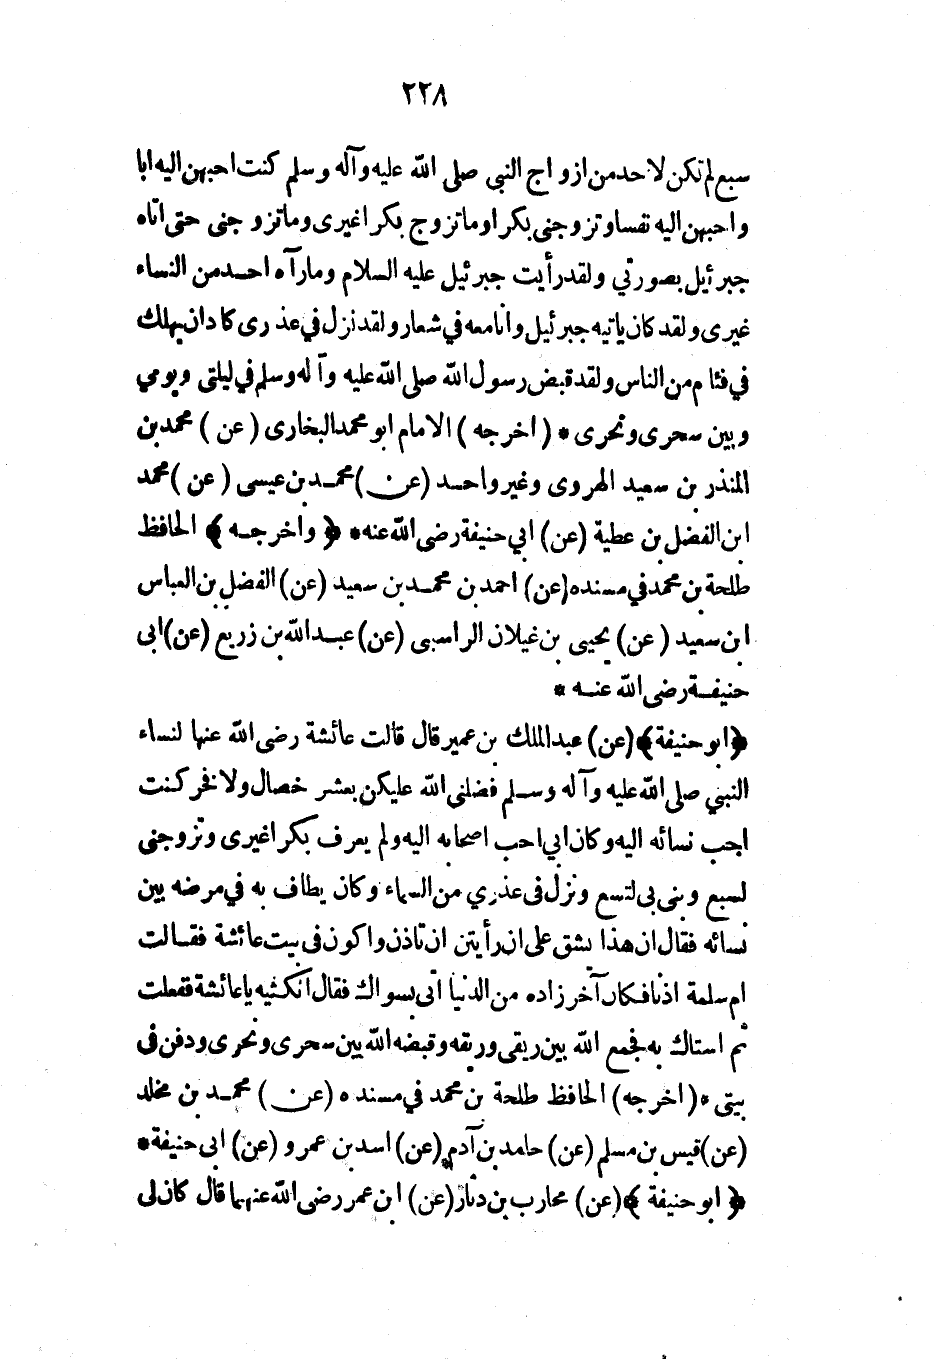 ٢٢٨
سبع لم تكن لاحد من ازواج النبي صلى الله عليه وآله وسلم كنت احبهن اليه ابا
واحبهن اليه نفسا وتزوجنى بكرا وما تزوج بكرا غيرى وما تزوجنى حتى اتاه
جبرئيل بصورتي ولقد رأيت جبرئيل عليه السلام ومارآه احد من النساء
غيرى ولقد كان ياتيه جبرئيل وانا معه في شعار ولقد نزل في عذرى كاد ان يهلك
في فئام من الناس ولقد قبض رسول الله صلى الله عليه وآله وسلم في ليلتى ويومي
وبين سحرى ونحرى * ( اخرجه ) الامام ابو محمد البخارى ( عن ) محمد بن
المنذر بن سعيد الهروى وغير واحد (عن) محمد بن عيسى ( عن ) محمد
ابن الفضل بن عطية (عن) ابي حنيفة رضى الله عنه * ﴿ واخرجه ﴾ الحافظ
طلحة بن محمد في مسنده (عن) احمد بن محمد بن سعيد (عن) الفضل بن العباس
ابن سعيد ( عن) يحيى بن غيلان الراسبى (عن) عبد الله بن زريع (عن) ابى
حنيفة رضى الله عنه *
﴿ابو حنيفة﴾ (عن) عبد الملك بن عمير قال قالت عائشة رضى الله عنها لنساء
النبي صلى الله عليه وآله وسلم فضلنى الله عليكن بعشر خصال ولا فخر كنت
احب نسائه اليه وكان ابي احب اصحابه اليه ولم يعرف بكرا غيرى وتزوجنى
لسبع وبنى بى لتسع ونزل فى عذري من السماء وكان يطاف به في مرضه بين
نسائه فقال ان هذا يشق على ان رأيتن ان تاذن واكون فى بيت عائشة فقالت
ام سلمة اذنا فكان آخر زاده من الدنيا اتى بسواك فقال انكثيه يا عائشة ففعلت
ثم استاك به فجمع الله بين ريقى وريقه وقبضه الله بين سحرى ونحرى ودفن فى
بيتى * ( اخرجه ) الحافظ طلحة بن محمد في مسنده (عن) محمد بن مخلد
(عن) قيس بن مسلم (عن) حامد بن آدم (عن) اسد بن عمرو (عن) ابى حنيفة *
﴿ ابو حنيفة ﴾ (عن) محارب بن دثار (عن) ابن عمر رضى الله عنهما قال كان لى